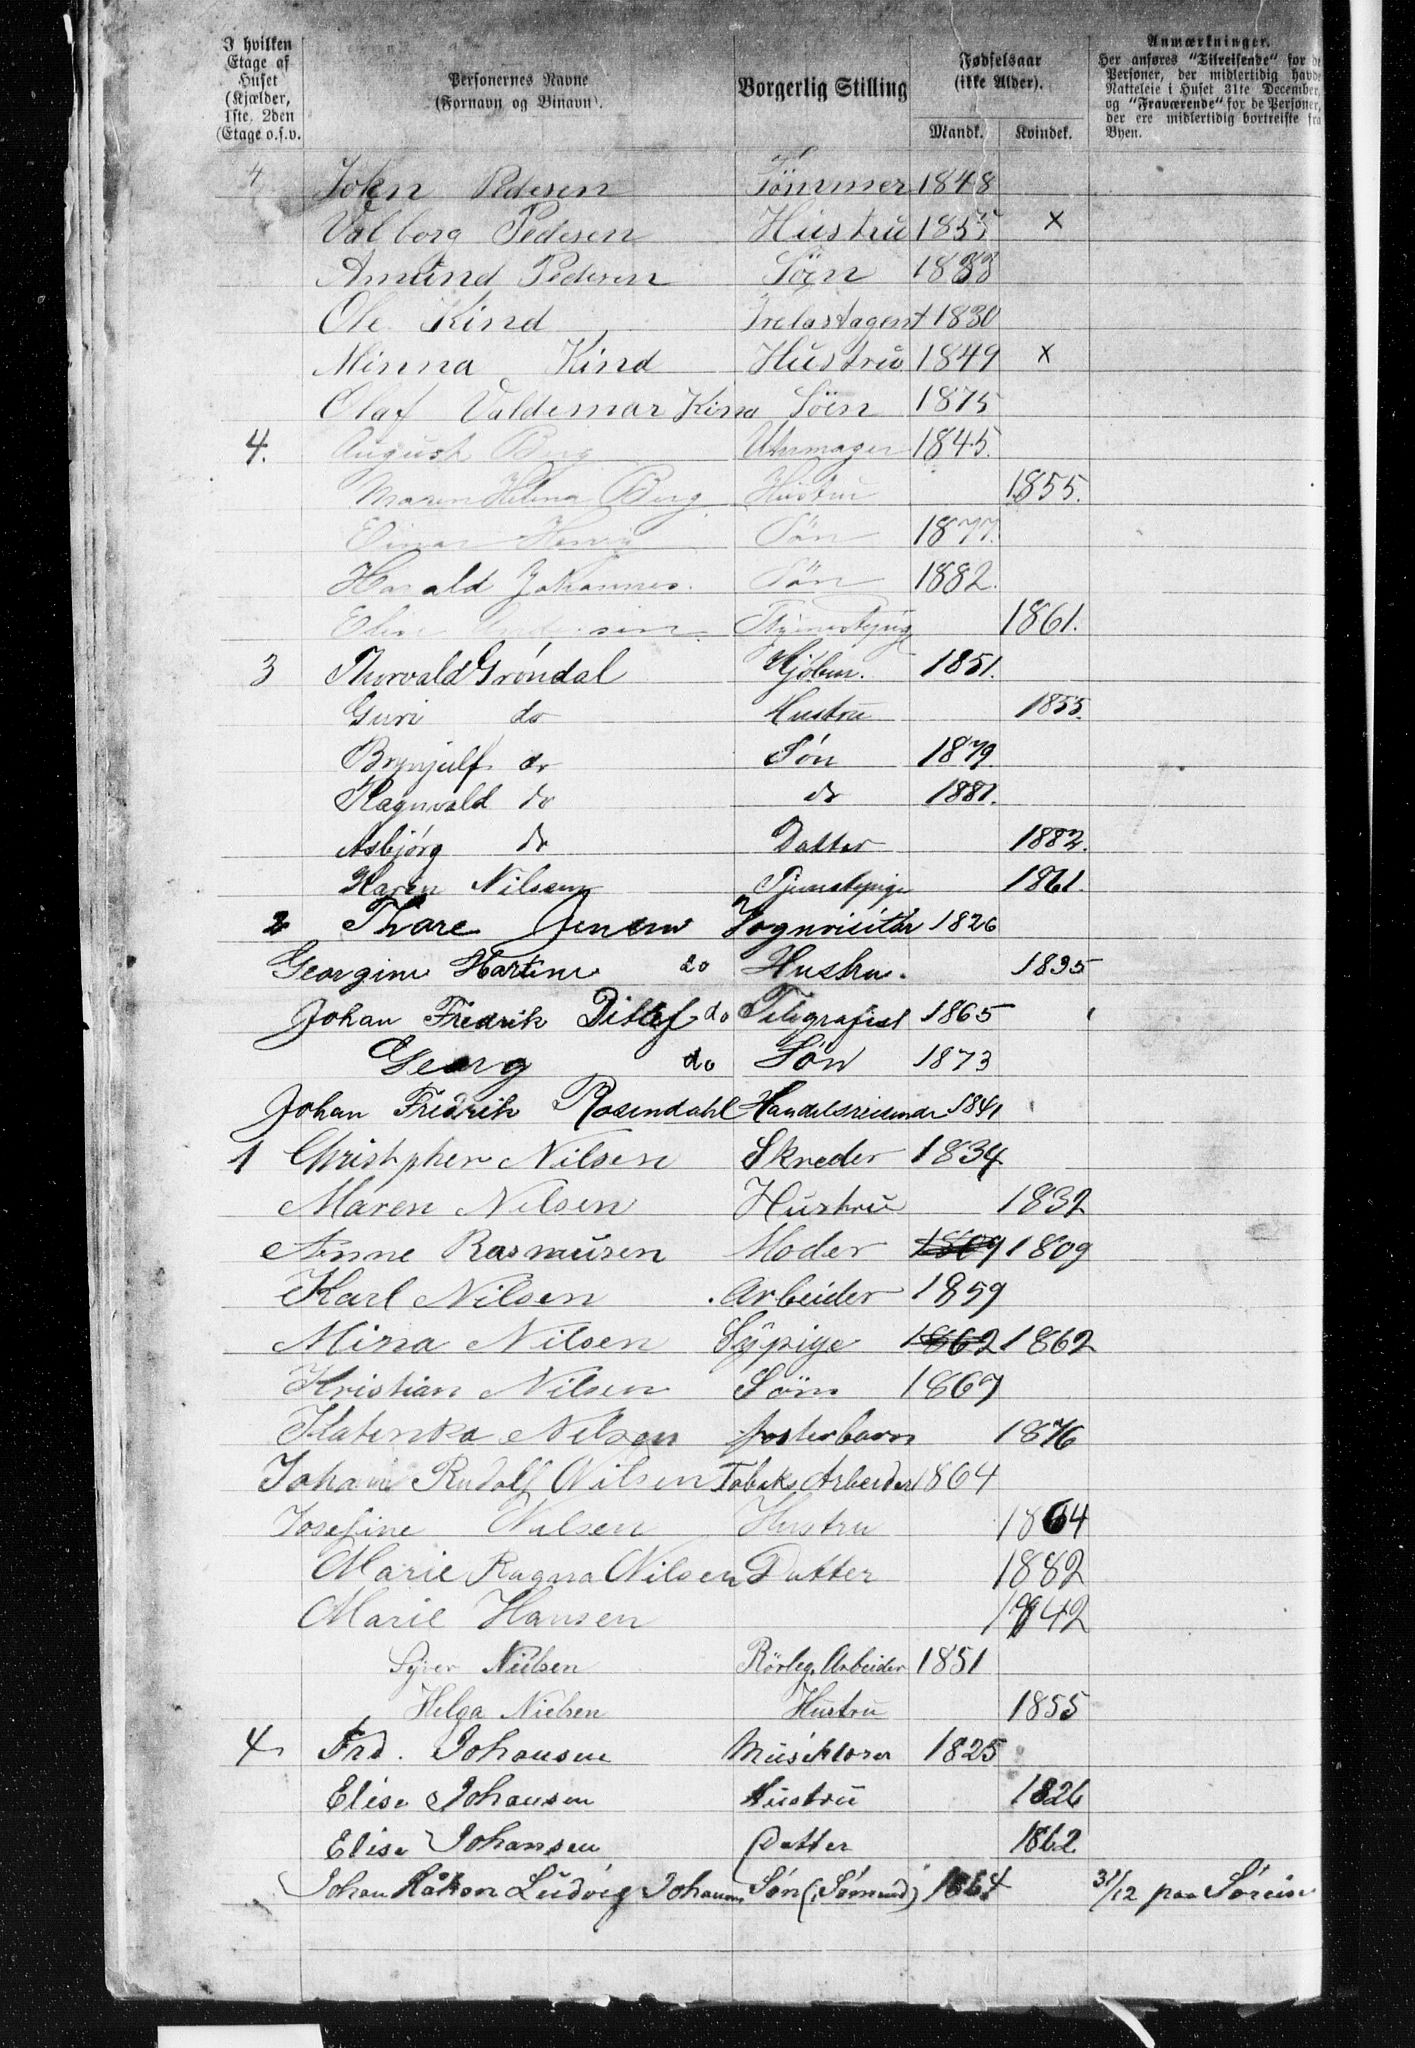 I hvilken Etage af Huset (Kjælder, 1ste, 2den Etage o.s.v.
Personernes Navne (Fornavn og Binavn).
Borgerlig Stilling
Fødselsaar (ikke Alder).
Mandk. Kvindek.
Anmærkninger.
Her anføres "Tilreisende" for de Personer, der midlertidig havde Natteleie i Huset 31te December, og "Fraværende" for de Personer, der ere midlertidig bortreiste fra Byen.
4 John Pedesen Tömmer 1848
Valborg Pedesen Hustru 1855 x
Amund Pedesen Söin 1883
Ole Kind Trelastagent 1830
Minna Kind Hustru 1849 x
Olaf Valdemar Kind Söin 1875
4. August Berg Uhrmager 1845.
Maren Helena Berg Hustru 1855.
Einar Henry Sön 1877.
Harald Johannes. Sön 1882.
Tjenestepige 1861.
3 Thorvald Gröndal Kjöbm. 1851.
Guri do Hustru 1855.
Brynjulf do Søn 1879.
Ragnvald do do 1881.
Asbjörg do Datter 1882.
Karen Nilsen Tjenestepige 1861.
2 Thore Jensen Vognvisitör 1826
Georgine Martine do Hustru. 1835
Johan Fredrik Ditlef do Telegrafist 1865
Georg do Sön 1873
Johan Fredrik Rosendahl Handelsreisende 1841
1 Christpher Nilsen Skreder 1834
Maren Nilsen Hustru 1832
Anne Rasmusen Moder 1809 1809
Karl Nilsen Arbeider 1859
Mina Nilsen Sypige 1862 1862
Kristian Nilsen Sön 1867
Katinka Nilsen fosterbarn 1876
Johan Rudolf Nilsen Tobaks Arbeider 1864
Josefine Nilsen Hustru 1864
Marie Ragna Nilsen Datter 1882
Marie Hansen 1842
Syver Nielsen Rörleg. Arbeider 1851
Helga Nielsen Hustru 1855
4 Frd. Johansen Musiklærer 1825
Elise Johansen Hustru 1826
Elise Johansen Datter 1862
Johan Håkon Ludvig Johansen Søn (Sömand) 1864 31/12 paa Söreise